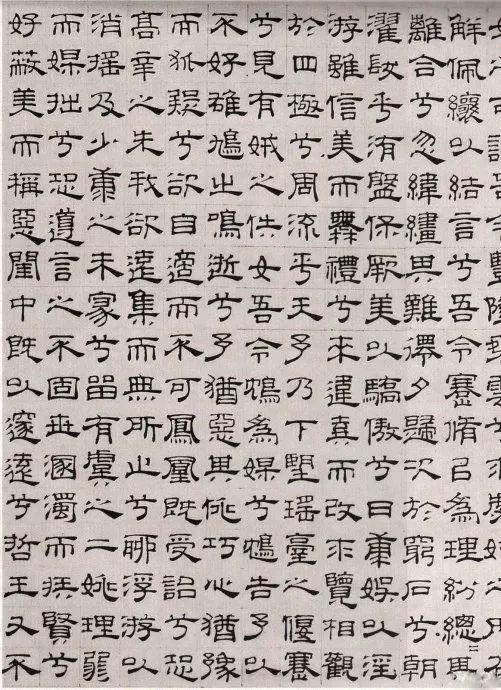 解佩纕以結言兮吾令蹇脩以為理紛總其
離合兮忽緯繣其難遷夕歸次於窮石兮朝
濯髮乎洧盤保厥美以驕傲兮日康娛以淫
游雖信美而無禮兮來違棄而改求覽相觀
於四極兮周流乎天予乃下望瑤臺之偃蹇
兮見有娀之佚女吾令鴆為媒兮鴆告予以
不好雄鳩之鳴逝兮予猶惡其佻巧心猶豫
而狐疑兮欲自適而不可鳳凰既受詔兮恐
高辛之先我欲遠集而無所止兮聊浮游以
消搖及少康之未家兮留有虞之二姚理弱
而媒拙兮恐導言之不固世溷濁而嫉賢兮
好蔽美而稱惡閨中既以邃遠兮哲王又不